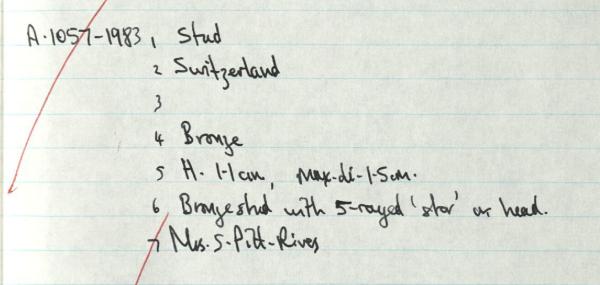 A.1057-1983 1 Stud
2 Switzerland
3
4 Bronze
5 H. 1.1cm, max.di-1.5cm.
6 Bronze stud with 5-rayed 'star' as head.
7 Mrs. S. Pitt-Rivers